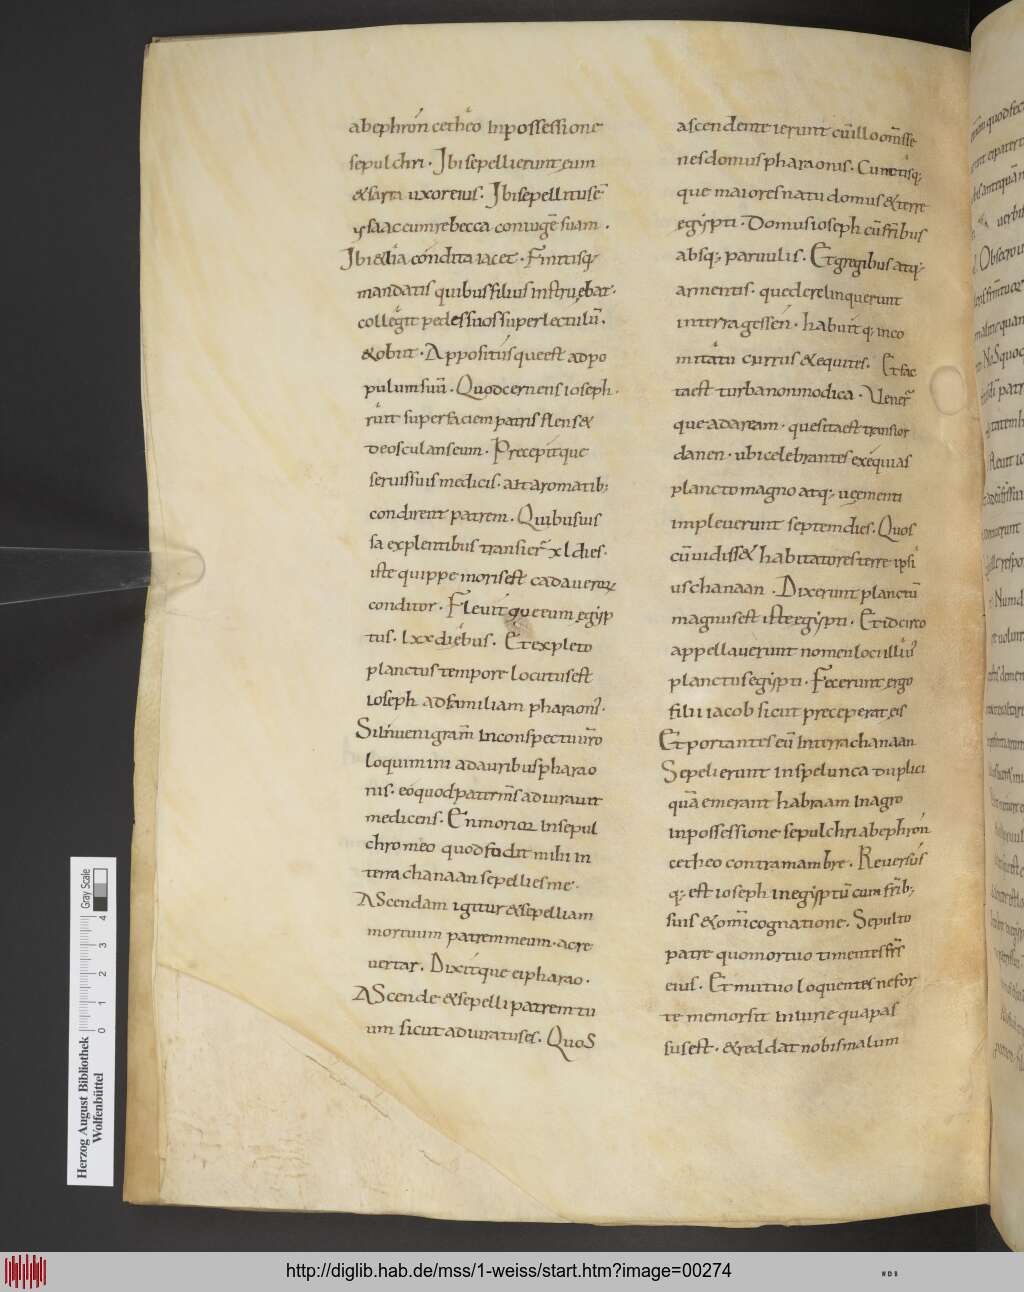 abephron cetheo inpossessione
sepulchri. Ibi sepellierunt eum
& sarra uxor eius. Ibi sepellitus ē
ysaac cum rebecca coniugē suam.
Ibi & lia condita iacet. Finitisq;
mandatis quibus filius instruebat.
collegit pedes suos super lectulū.
& obiit. Appositusque est ad po
pulum suū. Quod cernens ioseph.
ruit super faciem patris flens &
deosculans eum. Precepitque
seruis suis medicis. ut aromatib;
condirent patrem. Quibus ius
sa explentibus transier̄ xl dies.
iste quippe moris est cadauerorum
conditor. Fleuitque eum egyp
tus. lxx diebus. Et expleto
planctus tempore locutus est
ioseph ad familiam pharaonis.
Si inueni gram̄ in conspectu uro
loquimini ad auribus pharao
nis. eo quod pater m̄s adiurauit
me dicens. En morior in sepul
chro meo quod fodit mihi in
terra chanaan sepellies me.
AScendam igitur & sepelliam
mortuum patrem meum. ac re
uertar. Dixitque ei pharao.
AScende & sepelli patrem tu
um sicut adiuratus es. QuoS
ascendente ierunt cū illo om̄s se
nes domus pharaonis. Cunctisq;
que maiores natu domus & terre
egypti. Domus ioseph cū fr̄ibus
absq; paruulis. Et gregibus atq;
armentis. que derelinquerunt
in terra gessen. habuitq; in co
mitatu currus & equites. Et fac
ta est turba non modica. Uener̄
que ad aream. que sita est trans ior
danen. ubi celebrantes exequias
plancto magno atq; uementi
impleuerunt septem dies. Quos
cū uidiss& habitatores terre ipsi
us chanaan. Dixerunt planctū
magnus est iste egypti. Et idcirco
appellauerunt nomen loci illius
planctus egypti. Fecerunt ergo
filii iacob sicut preceperat eis
Et portantes eū in terra chanaan
Sepelierunt in spelunca duplici
quā emerant habraam in agro
in possessione sepulchri abephron
cetheo contra mambre. Reuersus
q; est ioseph in egyptū cum fr̄ib;
suis & om̄i cognatione. Sepulto
patre quo mortuo timentes frs̄
eius. Et mutuo loquentes ne for
te memor sit iniurie qua pas
sus est. & reddat nobis malum
Herzog August Bibliothek
Wolfenbüttel
0 1 2 3 4
Gray Scale
http://diglib.hab.de/mss/1-weiss/start.htm?image=00274